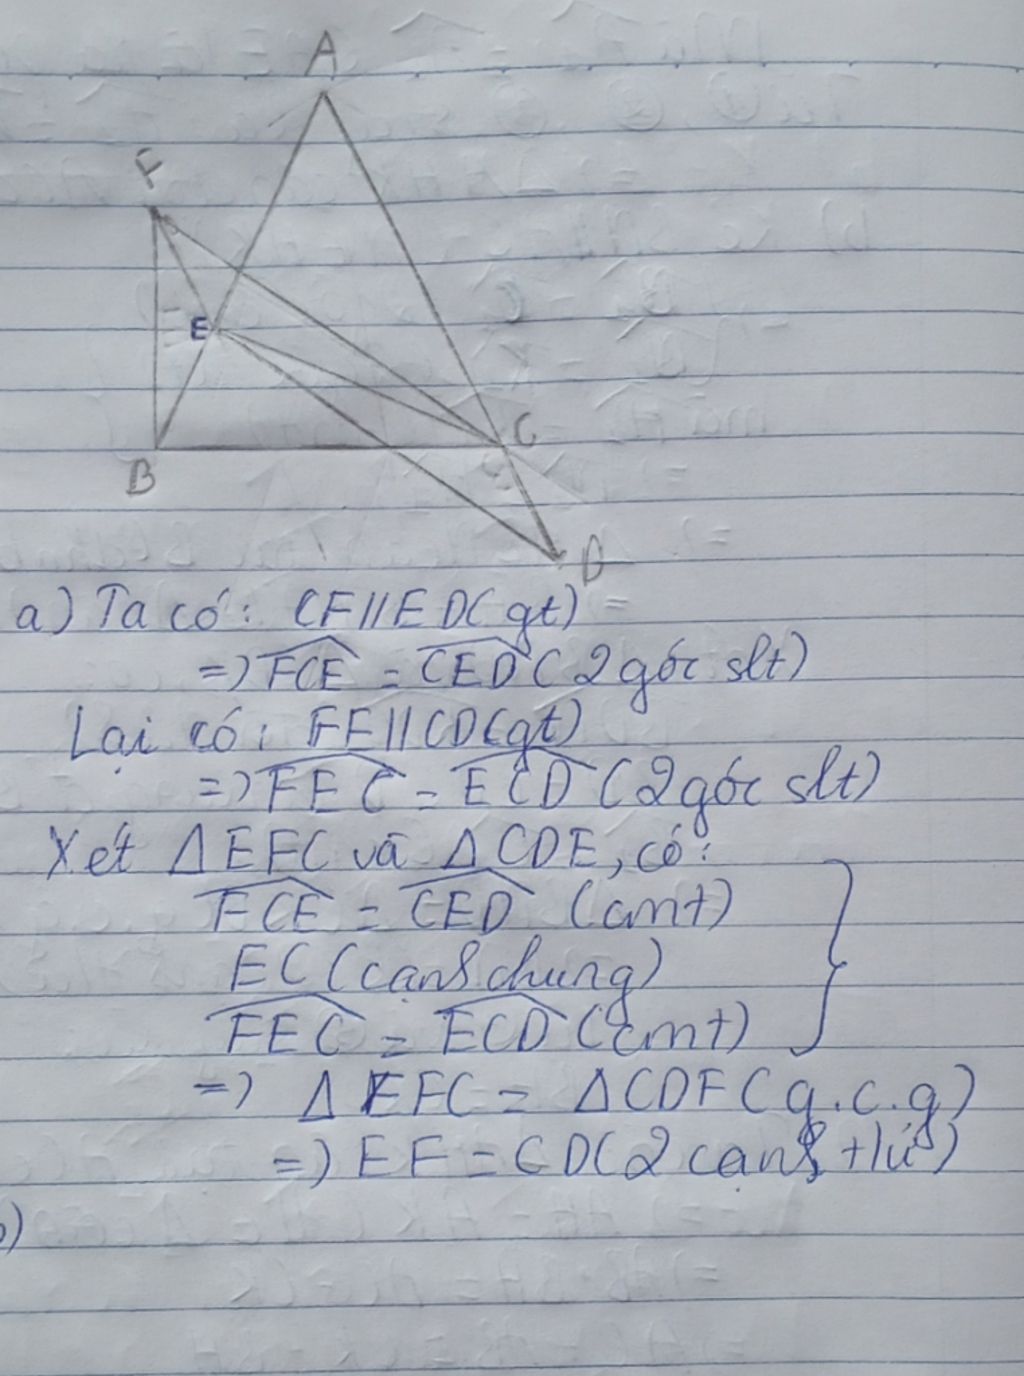 A
F
E
C
B
D
a) Ta có: CF // ED (gt)
=> FCE = CED (2 góc slt)
Lại có: FE // CD (gt)
=> FEC = ECD (2 góc slt)
Xét Δ EFC và Δ CDE, có:
FCE = CED (cmt)
EC (cạnh chung)
FEC = ECD (cmt)
=> Δ EFC = Δ CDE (g.c.g)
=> EF = CD (2 cạnh t/ứ)
b)